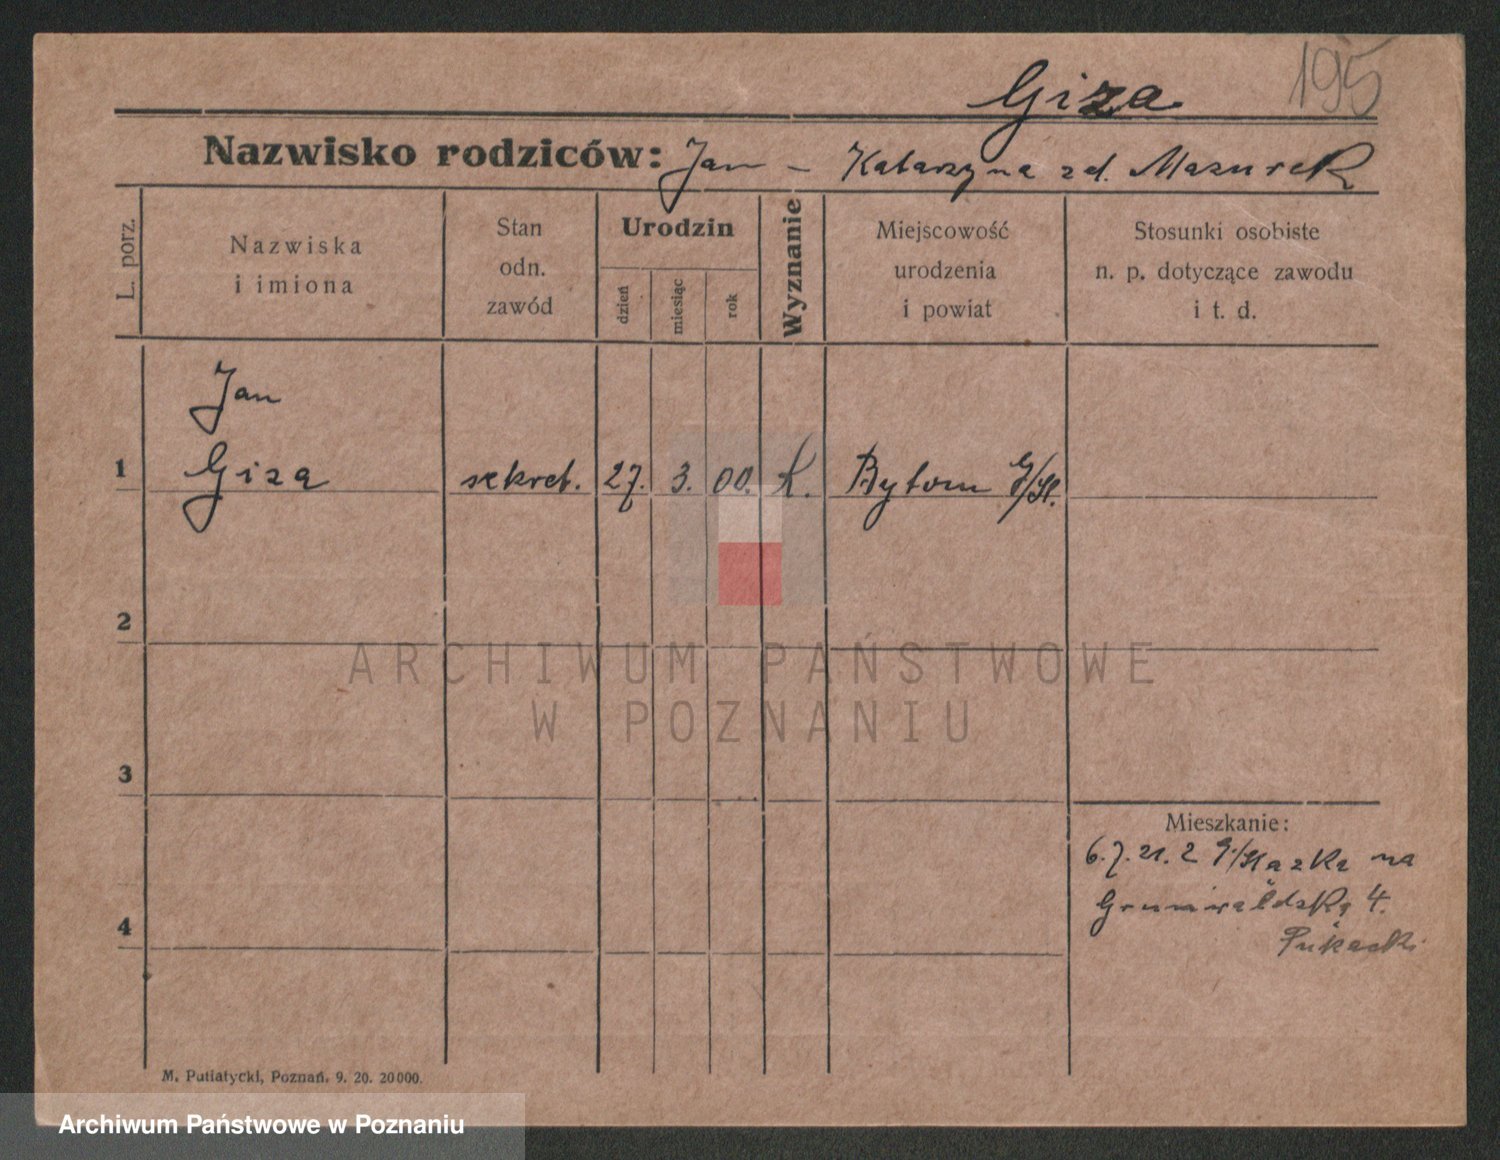 195
Giza
Nazwisko rodziców: Jan – Katarzyna zd. Mazurek
L. porz.
Nazwiska
i imiona
Stan
odn.
zawód
Urodzin
dzień
miesiąc
rok
Wyznanie
Miejscowość
urodzenia
i powiat
Stosunki osobiste
n. p. dotyczące zawodu
i t. d.
Jan
1 Giza sekret. 27. 3. 00. k. Bytom G/Śl.
2
ARCHIWUM PAŃSTWOWE
W POZNANIU
3
Mieszkanie:
6.7.21. 2 na
4 Grunwaldzką 4.
M. Putiatycki, Poznań. 9. 20. 20000.
Archiwum Państwowe w Poznaniu